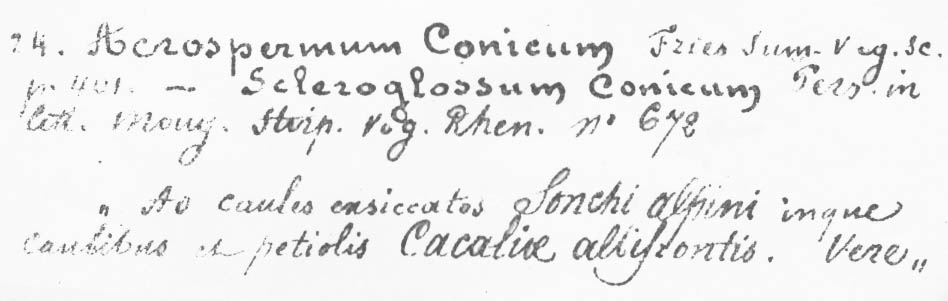 24. Acrospermum Conicum Fries Sum. Veg. Sc.
p. 401. — Scleroglossum Conicum Pers. in
litt. Moug. Stirp. Vog. Rhen. n° 672
„ Ad caules exsiccatos Sonchi alpini inque
caulibus et petiolis Cacaliæ albifrontis. Vere „